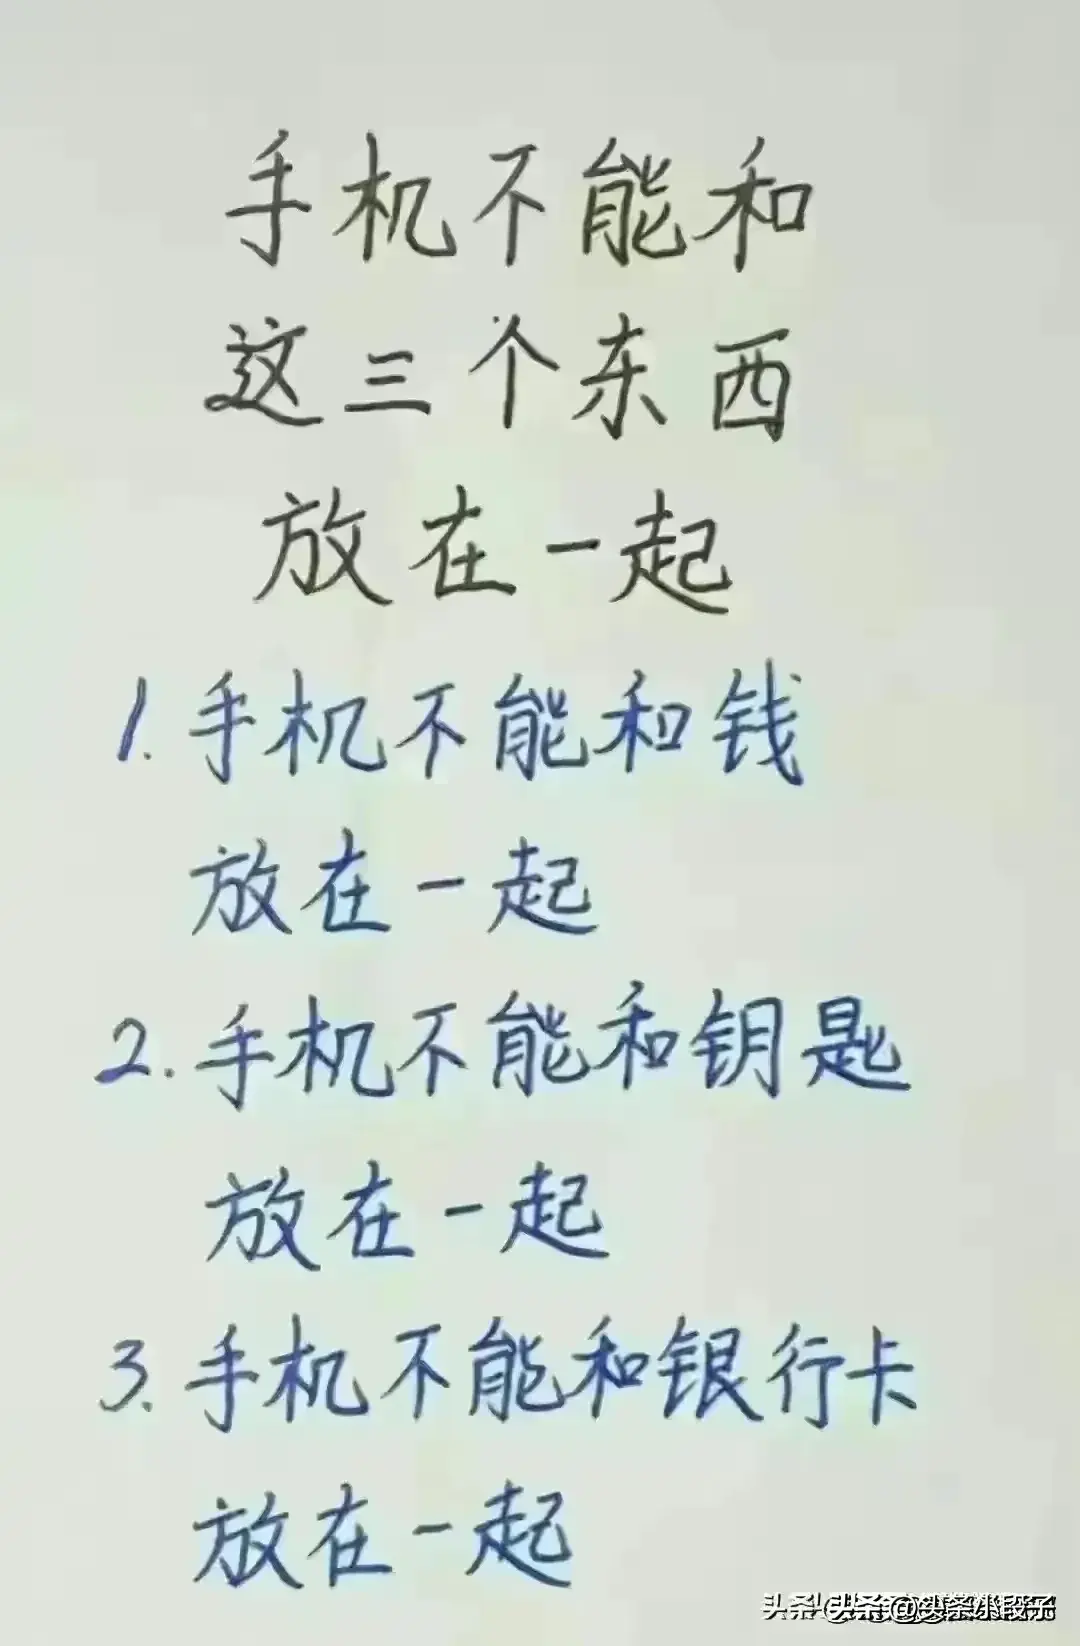 手机不能和
这三个东西
放在一起
1.手机不能和钱
放在一起
2.手机不能和钥匙
放在一起
3.手机不能和银行卡
放在一起
头条@头条小段子